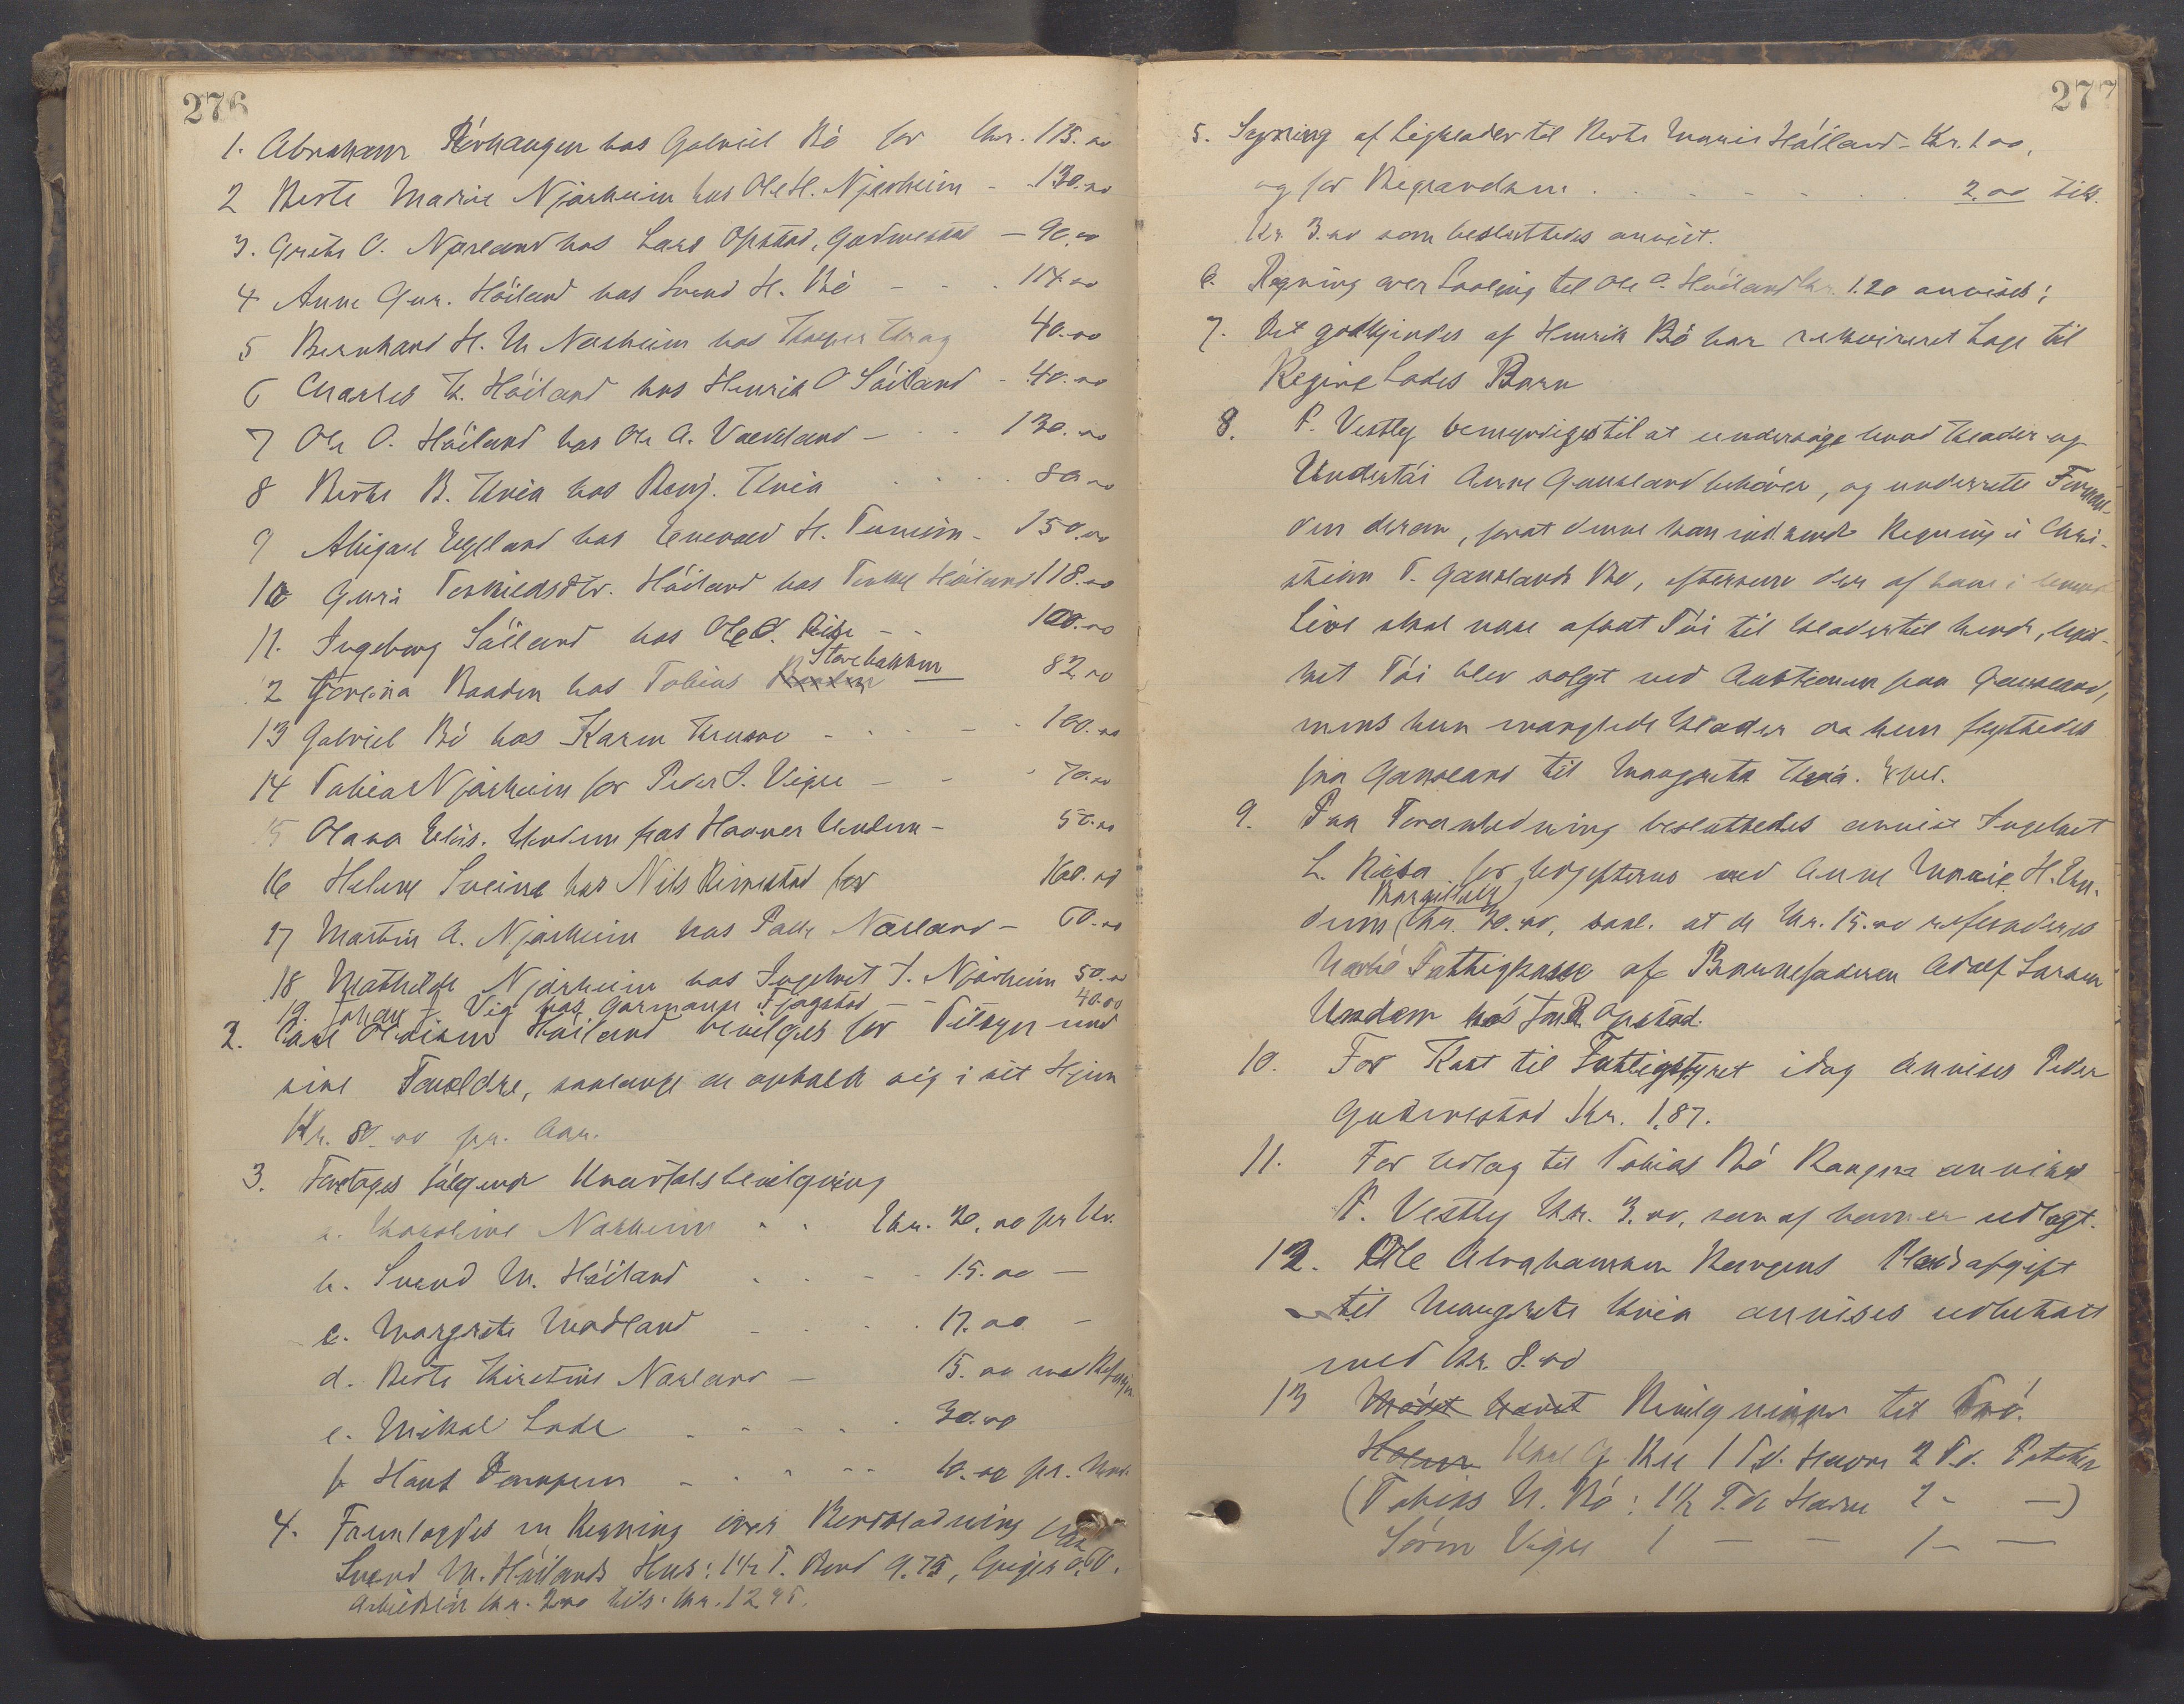 276
1. Abraham Rérhaugen hos Gabriel Bö for Kr. 115.00
2 Berte Marie Njærheim hos Ole H. Njærheim - - 130.00
3. Grethe O. Nærland hos Lars Opstad, Gudmestad - 90.00
4 Anne Gur. Höiland hos Svend H. Bö - - - 114.00
5 Bernhard H. Nærheim hos 40.00
6 Charles T. Höiland hos Henrik O Söiland - 40.00
7 Ole O. Höiland hos Ole A. Varland - - - 130.00
8 Berthe B. Kvia hos Benj. Kvia . . . . 80.00
9 Abigael Egeland hos Enevald H. Tunheim - 150.00
10 Guri Torkildsdtr. Höiland hos Torkel Höiland 118.00
11. Ingeborg Söiland hos Ole O. Risa - - 100.00
12 Gorina Raaden hos Tobias Storebakken 82.00
13 Gabriel Bö hos Karen - . . - . 100.00
14 Tobias Njærheim for Peder S. Vigre - - - 70.00
15 Olava Elis. Undem hos Haaver Undem - 50.00
16 Helene Sveine hos Nils Rimestad for 160.00
17 Martin A. Njærheim hos Nærland - 60.00
18 Mathilde Njærheim hos Ingebret T. Njærheim 50.00
19. Johan T. Vig hos Garmann Fjogstad - - 40.00
2. Höiland bevilges for Tilsyn med
sine Forældre, saalænge de opholdt sig i sit Hjem
Kr. 80.00 pr. Aar.
3. Foretoges fölgende Kvartalsbevilgning
a. Karoline Nærheim . . Kr. 20.00 pr Kv.
b. Svend M. Höiland . . - - 15.00 -
c. Margrete Madland - . . . 17.00 -
d. Berte Kirstine Nærland - 15.00
e. Mikal Lode . - - - . 30.00
f. Hans - . - - - 10.00 pr.
4. Fremlagdes en Regning over
Svend M. Höilands Hus: 1 1/2 T. Bord 9.75,
Arbeidslön Kr. 2.00 tils. Kr. 12.45.
277
5. Syning af Ligklæder til Berte Marie Höiland - Kr. 1 00,
og for Begravelsen . . . - - - . . 2.00 tils.
Kr. 3.00 som besluttedes anvist.
6. Regning over til Ole O. Höiland Kr. 1.20 anvises;
7. Det godkjendes at Henrik Bö har rekvireret Læge til
Regine Lodes Barn
8. P. Vestly bemyndiges til at undersöge hvad Klæder og
Undertöi Anne Gausland behöver, og underrette Forman-
den derom, forat denne kan indsende Regning i Chri-
stian T. Gauslands Bo, eftersom der af ham i levende
Live skal være afsat Töi til Klæder til hende, hvil-
ket Töi blev solgt ved Auktionen paa Gausland,
mens hun manglede Klæder da hun flyttedes
fra Gausland til Margrete Kvia.
9. Paa Foranledning besluttedes anvist Ingebret
L. Risa for Udgifterne med Anne Marie H. Un-
dem Kr. 30.00, saal. at de Kr. 15.00 refunderes
Fattigkasse af Barnefaderen Adolf Larsen
Undem hos Jon R. Opstad.
10. For Kost til Fattigstyret idag anvises Peder
Gudmestad Kr. 1.87.
11. For Udlæg til Tobias Bö anvises
P. Vestly Kr. 3.00, som af ham er udlagt.
12. Ole Abrahamsen Haugens Pladsafgift
til Margrete Kvia anvises udbetalt
med Kr. 8.00
13 Mödet Bevilgninger til Frö.
1 Td. Havre 2 Td. Poteter
(Tobias N. Bö: 1 1/2 T.de Havre 2 - —)
Sören Vigre 1 — — 1 - —